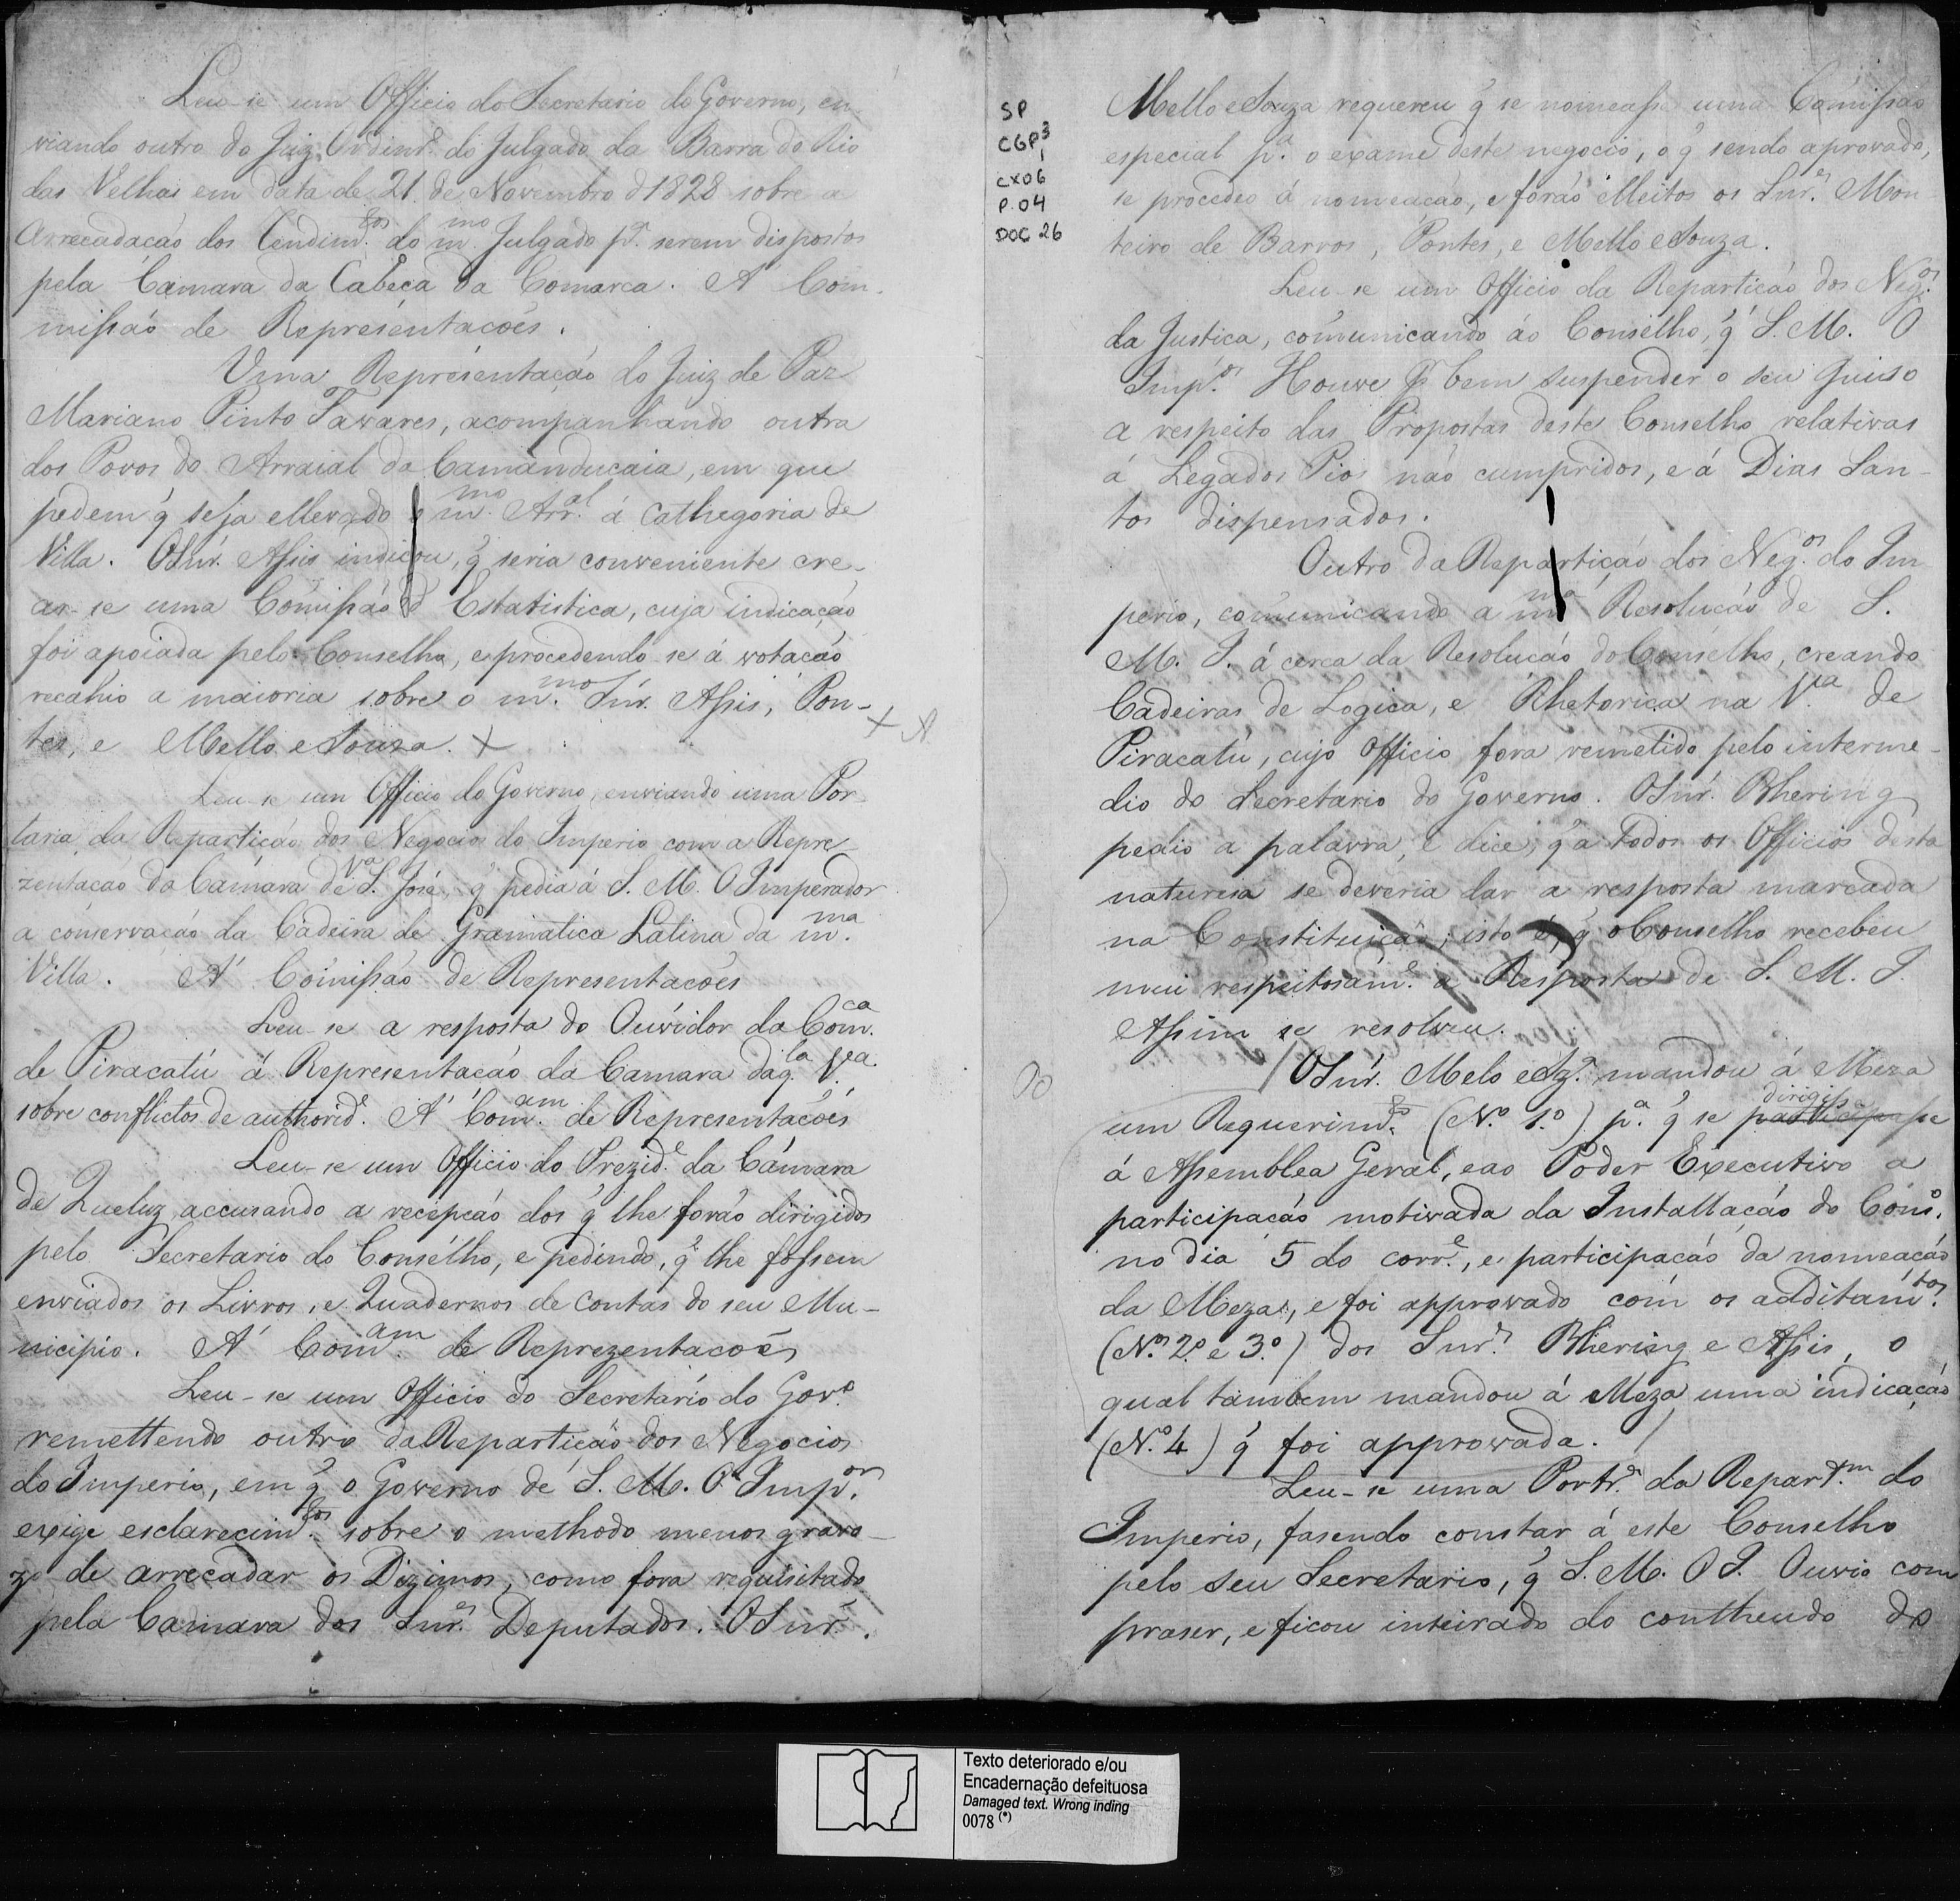 Leu-se um Officio do Secretario do Governo, en-
viando outro do Juiz Ordinr.º do Julgado da Barra do Rio
das Velhas em data de 21 de Novembro d 1828 sobre a
Arrecadacáo dos Rendim.tos do m.mo Julgado p.ª serem dispostos
pela Camara da Cabeça da Comarca. A' Com-
missáo de Representacoēs.
Uma Representaçáo do Juiz de Paz
Mariano Pinto Tavares, acompanhando outra
dos Povos do Arraial de Camanducaia, em que
pedem q̃ seja ellevado o m.mo Arr.al á Cathegoria de
Villa. O Snr. Assis indicou, q̃ seria conveniente cre-
ar-se uma Comissáo d' Estatistica, cuja indicaçáo
foi apoiada pelo Conselho, e procedendo-se á votacáo
recahio a maioria sobre o m.mo Snr. Assis, Pon-
tes, e Mello e Souza. + + A
Leu-se um Officio do Governo, enviando uma Por-
taria da Reparticáo dos Negocios do Imperio com a Repre-
zentacáo da Camara de V.ª S. José, q̃ pedia á S. M. O Imperador
a conservacáo da Cadeira de Gramatica Latina da m.ma
Villa. A' Comissáo de Representacoēs
Leu-se a resposta do Ouvidor da Com.ca
de Piracatú á Representacáo da Camara daq.la V.ª
sobre conflictos de authorid.e A' Com.am de Representacoēs
Leu-se um Officio do Prezid.e da Camara
de Queluz accusando a recepcáo dos q̃ lhe foráo dirigidos
pelo Secretario do Conselho, e pedindo, q̃ lhe fossem
enviados os Livros, e Quadernos de Contas do seu Mu-
nicipio. A' Com.am de Reprezentacoēs
Leu-se um Officio do Secretario do Gov.º
remettendo outro da Repartiçáo dos Negocios
do Imperio, em q̃ o Governo de S. M. O Imp.or
exige esclarecim.tos sobre o methodo menos gravo-
zo de arrecadar os Dizimos, como fora requisitado
pela Camara dos Snr.es Deputados. O Snr.
SP
CGP³
CX06
P.04
DOC 26
Mello e Souza requereu q̃ se nomeasse uma Comissáo
especial p.ª o exame deste negocio, o q̃ sendo aprovado,
se procedeo á nomeacáo, e foráo elleitos os Snr.es Mon-
teiro de Barros, Pontes, e Mello e Souza.
Leu-se um Officio da Reparticáo dos Neg.os
da Justica, comunicando áo Conselho, q̃ S. M. O
Imp.or Houve p.r bem suspender o seu Juiso
a respeito das Propostas deste Conselho relativas
á Legados Pios náo cumpridos, e á Dias San-
tos dispensados.
Outro da Repartiçáo dos Neg.os do Im-
perio, comunicando a m.ma Resolucáo de S.
M. I. á cerca da Resolucáo do Conselho, creando
Cadeiras de Logica, e Rhetorica na V.ª de
Piracatú, cujo Officio fora remetido pelo interme-
dio do Secretario do Governo. O Snr. Rhering
pedio a palavra, e dice, q̃ a todos os Officios desta
naturesa se deveria dar a resposta marcada
na Constituiçáo; isto é, q̃ o Conselho recebeu
mui respeitosam.e a Resposta de S. M. I.
Assim se resolveu.
O Snr. Melo e Sz.ª mandou á Meza
um Requerim.to (N.º 1.º) p.ª q̃ se participasse dirigisse
á Assemblea Geral, e ao Poder Executivo a
participacáo motivada da Installacáo do Cons.º
no dia 5 do corr.e, e participacáo da nomeacáo
da Meza, e foi approvado com os additam.tos
(N.os 2.º e 3.º) dos Snr.es Rhering e Assis, o
qual tambem mandou á Meza uma indicaçáo
(N.º 4) q̃ foi approvada.
Leu-se uma Portr.ª da Repart.am do
Imperio, fasendo constar á este Conselho
pelo seu Secretario, q̃ S. M. O I. Ouvio com
praser, e ficou inteirado do contheudo do
Texto deteriorado e/ou
Encadernação defeituosa
Damaged text. Wrong inding
0078 (*)